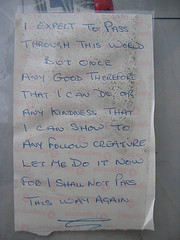 I EXPECT TO PASS
THROUGH THIS WORLD
BUT ONCE
ANY GOOD THEREFORE
THAT I CAN DO, OR
ANY KINDNESS THAT
I CAN SHOW TO
ANY FOLLOW CREATURE
LET ME DO IT NOW
FOR I SHALL NOT PASS
THIS WAY AGAIN